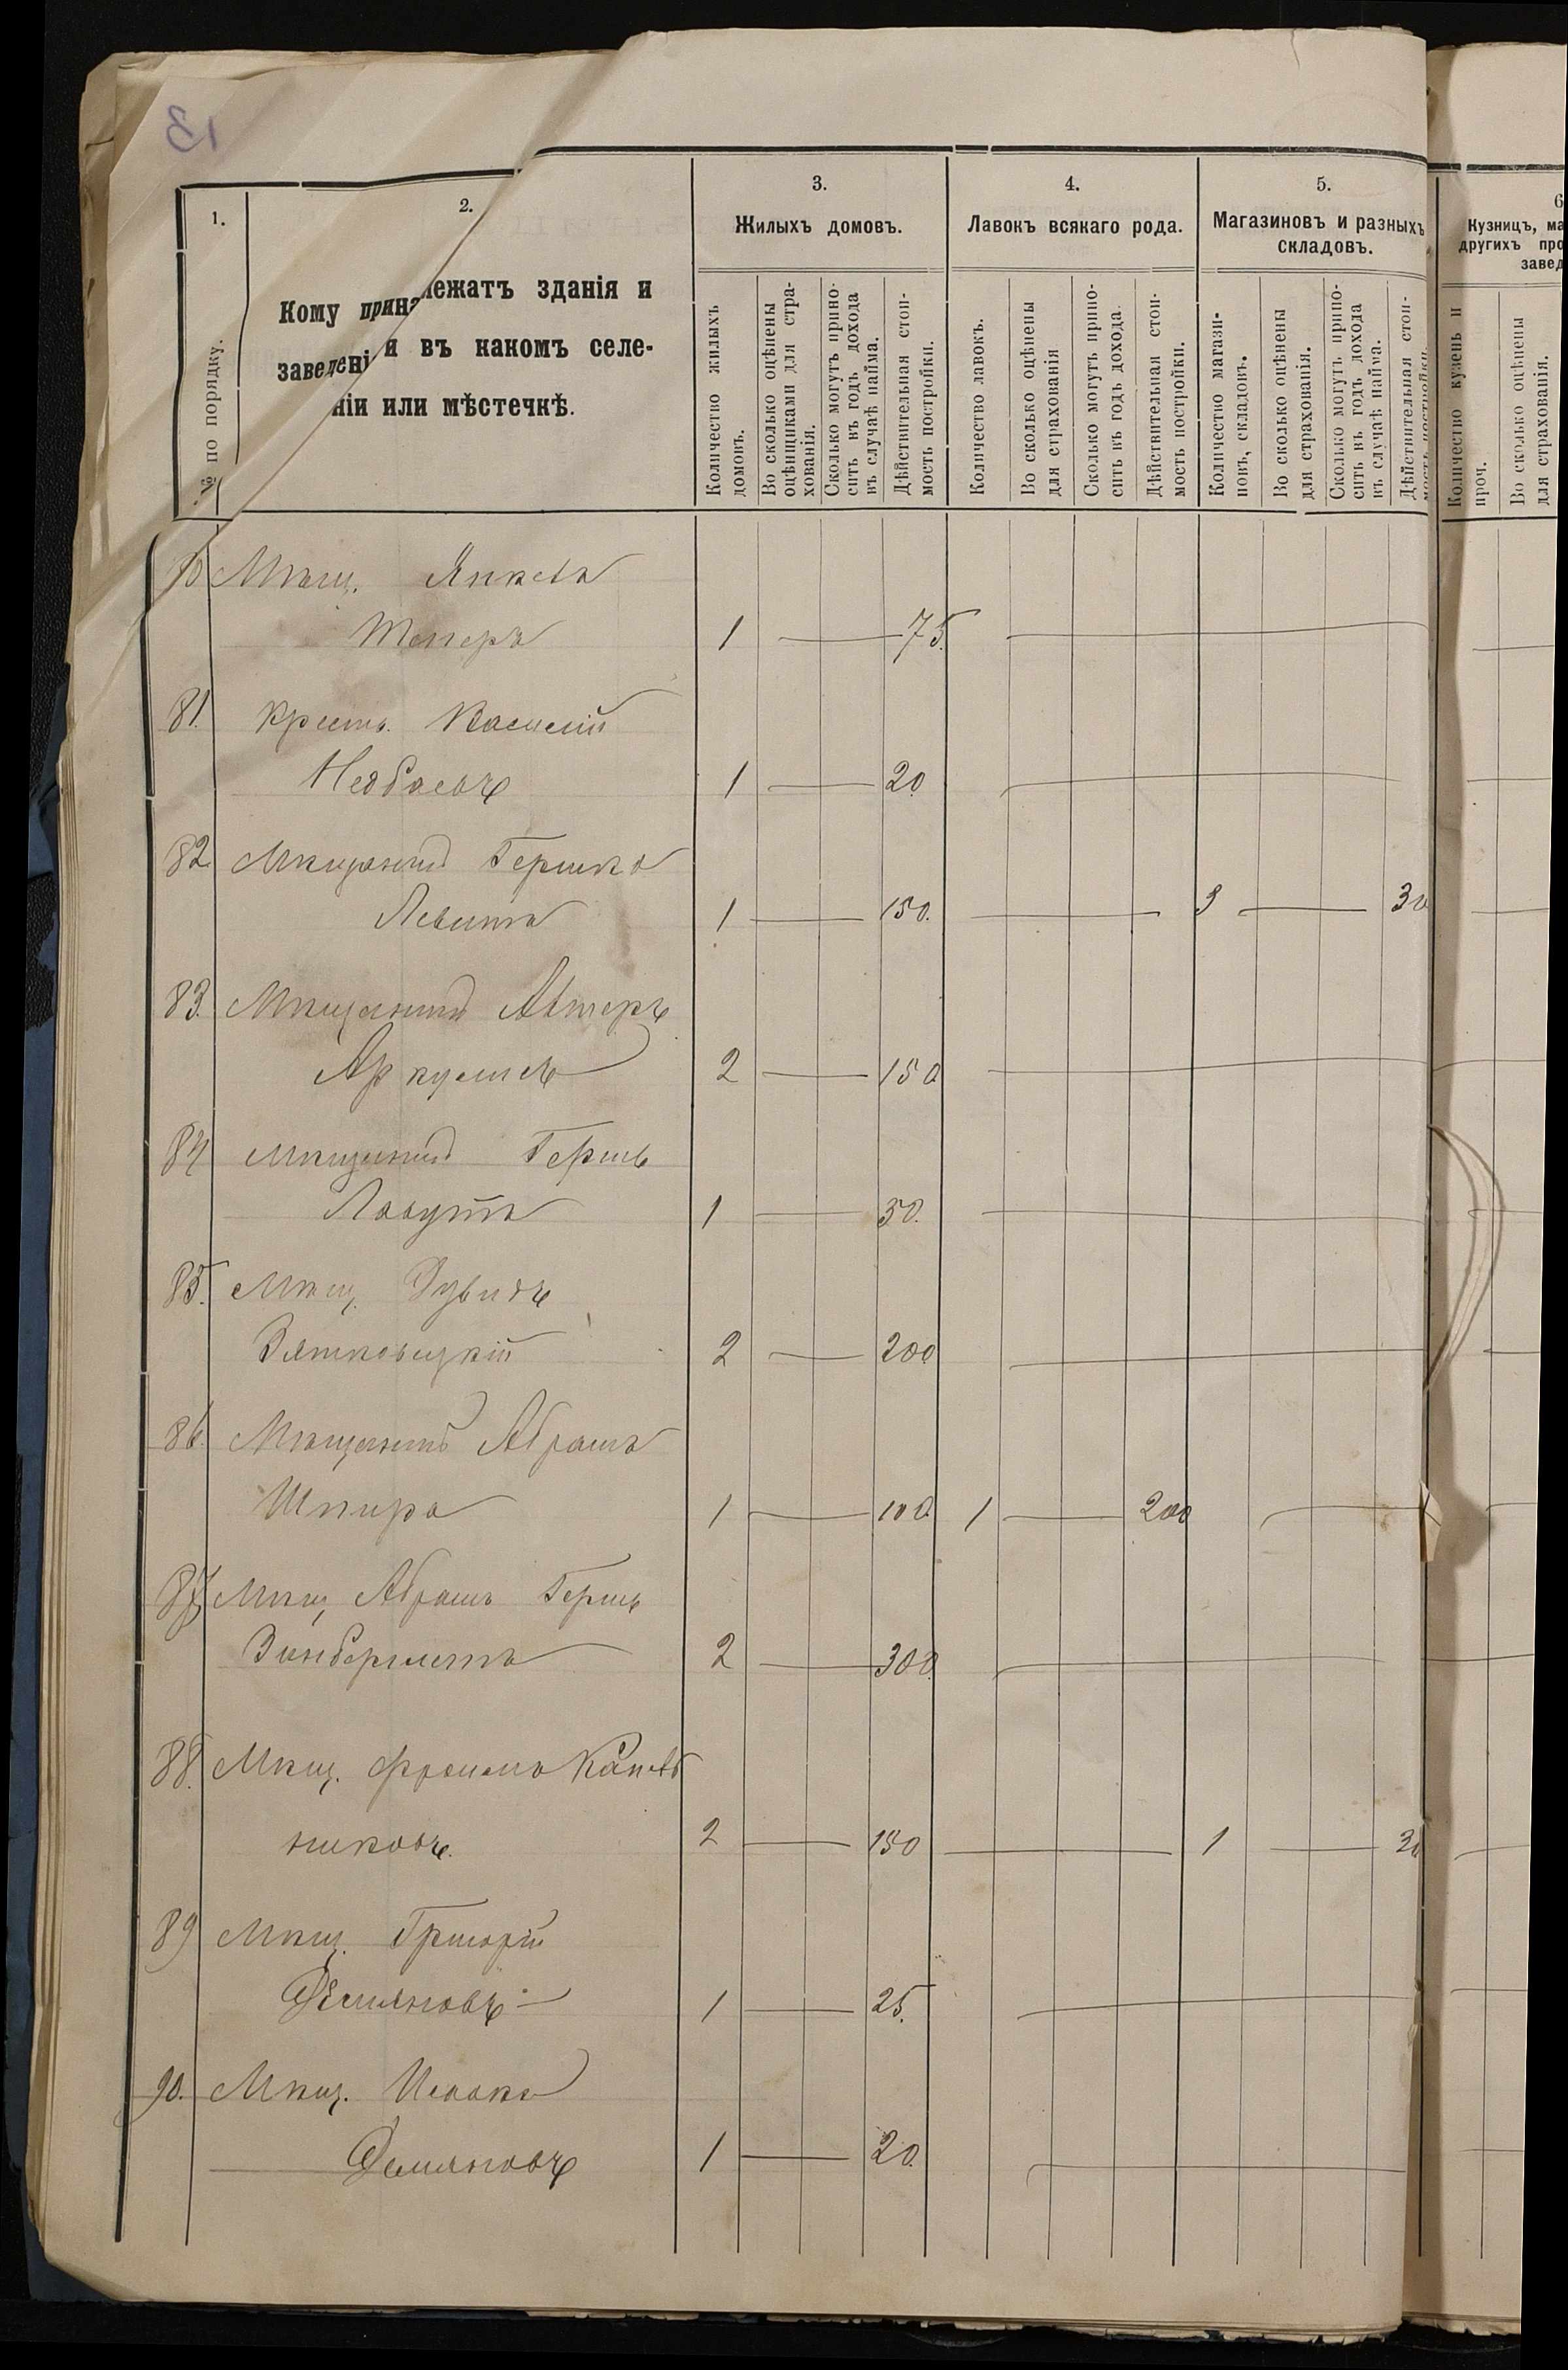 13
1.
2.
3.
4.
5.
6
№ по порядку.
Кому прин лежатъ зданія и
заведені и въ какомъ селе-
ніи или мѣстечкѣ.
Жилыхъ домовъ.
Количество жилыхъ домовъ.
Во сколько оцѣнены оцѣнщиками для стра-хованія.
Сколько могутъ прино-сить въ годъ дохода въ случаѣ найма.
Дѣйствительная стои-мость постройки.
Лавокъ всякаго рода.
Количество лавокъ.
Во сколько оцѣнены для страхованія
Сколько могутъ прино-сить въ годъ дохода.
Дѣйствительная стои-мость постройки.
Магазиновъ и разныхъ
складовъ.
Количество магази-новъ, складовъ.
Во сколько оцѣнены для страхованія.
Сколько могутъ прино-сить въ годъ дохода въ случаѣ найма.
Дѣйствительная стои-мость постройки.
Кузницъ, ма
других про
завед
Количество кузень и проч.
Во сколько оцѣнены для страхованія.
Мѣщ. Янкель
Теперъ 1 — 75.
81. Крест. Василій
1 — 20
82. Мѣщанинъ Гершко
Левитъ 1 — 150. — 3 — 30
83. Мѣщанинъ Алтеръ
2 — 150
84 Мѣщанинъ Гершъ
Лаутъ 1 — 50.
85. Мѣщ. Дувидъ
Вятковецкій 2 — 200
86. Мѣщанинъ Абрамъ
Шпира 1 — 100 1 — 200
87 Мѣщ. Абрамъ Гершъ
2 — 300
88. Мѣщ. Фроимъ Капель
никовъ. 2 — 150 — 1 — 20
89 Мѣщ. Григорій
Демьяновъ — 1 — 25.
90. Мѣщ. Исаакъ
Демяновъ 1 — 20.